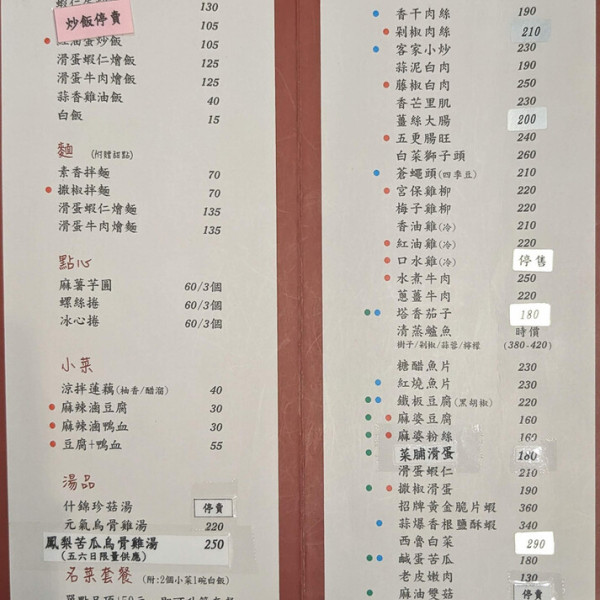 130
炒飯停賣
105
紅油蛋炒飯 105
滑蛋蝦仁燴飯 125
滑蛋牛肉燴飯 125
蒜香雞油飯 40
白飯 15
麵 (附體甜點)
素香拌麵 70
擻椒拌麵 70
滑蛋蝦仁燴麵 135
滑蛋牛肉燴麵 135
點心
麻薯芋圓 60/3個
螺絲捲 60/3個
冰心捲 60/3個
小菜
涼拌蓮藕(柚香/醋溜) 40
麻辣滷豆腐 30
麻辣滷鴨血 30
豆腐+鴨血 55
湯品
什錦珍菇湯 停賣
元氣烏骨雞湯 220
鳳梨苦瓜烏骨雞湯 250
(五六日限量供應)
名菜套餐 (附:2個小菜1碗白飯)
香干肉絲 190
剁椒肉絲 210
客家小炒 230
蒜泥白肉 190
藤椒白肉 250
香芒里肌 230
薑絲大腸 200
五更腸旺 240
白菜獅子頭 260
蒼蠅頭(四季豆) 210
宮保雞柳 220
梅子雞柳 220
香油雞(冷) 210
紅油雞(冷) 220
口水雞(冷) 停售
水煮牛肉 250
蔥薑牛肉 220
塔香茄子 180
清蒸鱸魚 時價
樹子/剁椒/蒜蓉/檸檬 (380-420)
糖醋魚片 230
紅燒魚片 230
鐵板豆腐(黑胡椒) 220
麻婆豆腐 160
麻婆粉絲 160
菜脯滑蛋 180
滑蛋蝦仁 210
擻椒滑蛋 190
招牌黃金脆片蝦 360
蒜爆香根鹽酥蝦 340
西魯白菜 290
鹹蛋苦瓜 180
老皮嫩肉 130
麻油雙菇 停賣